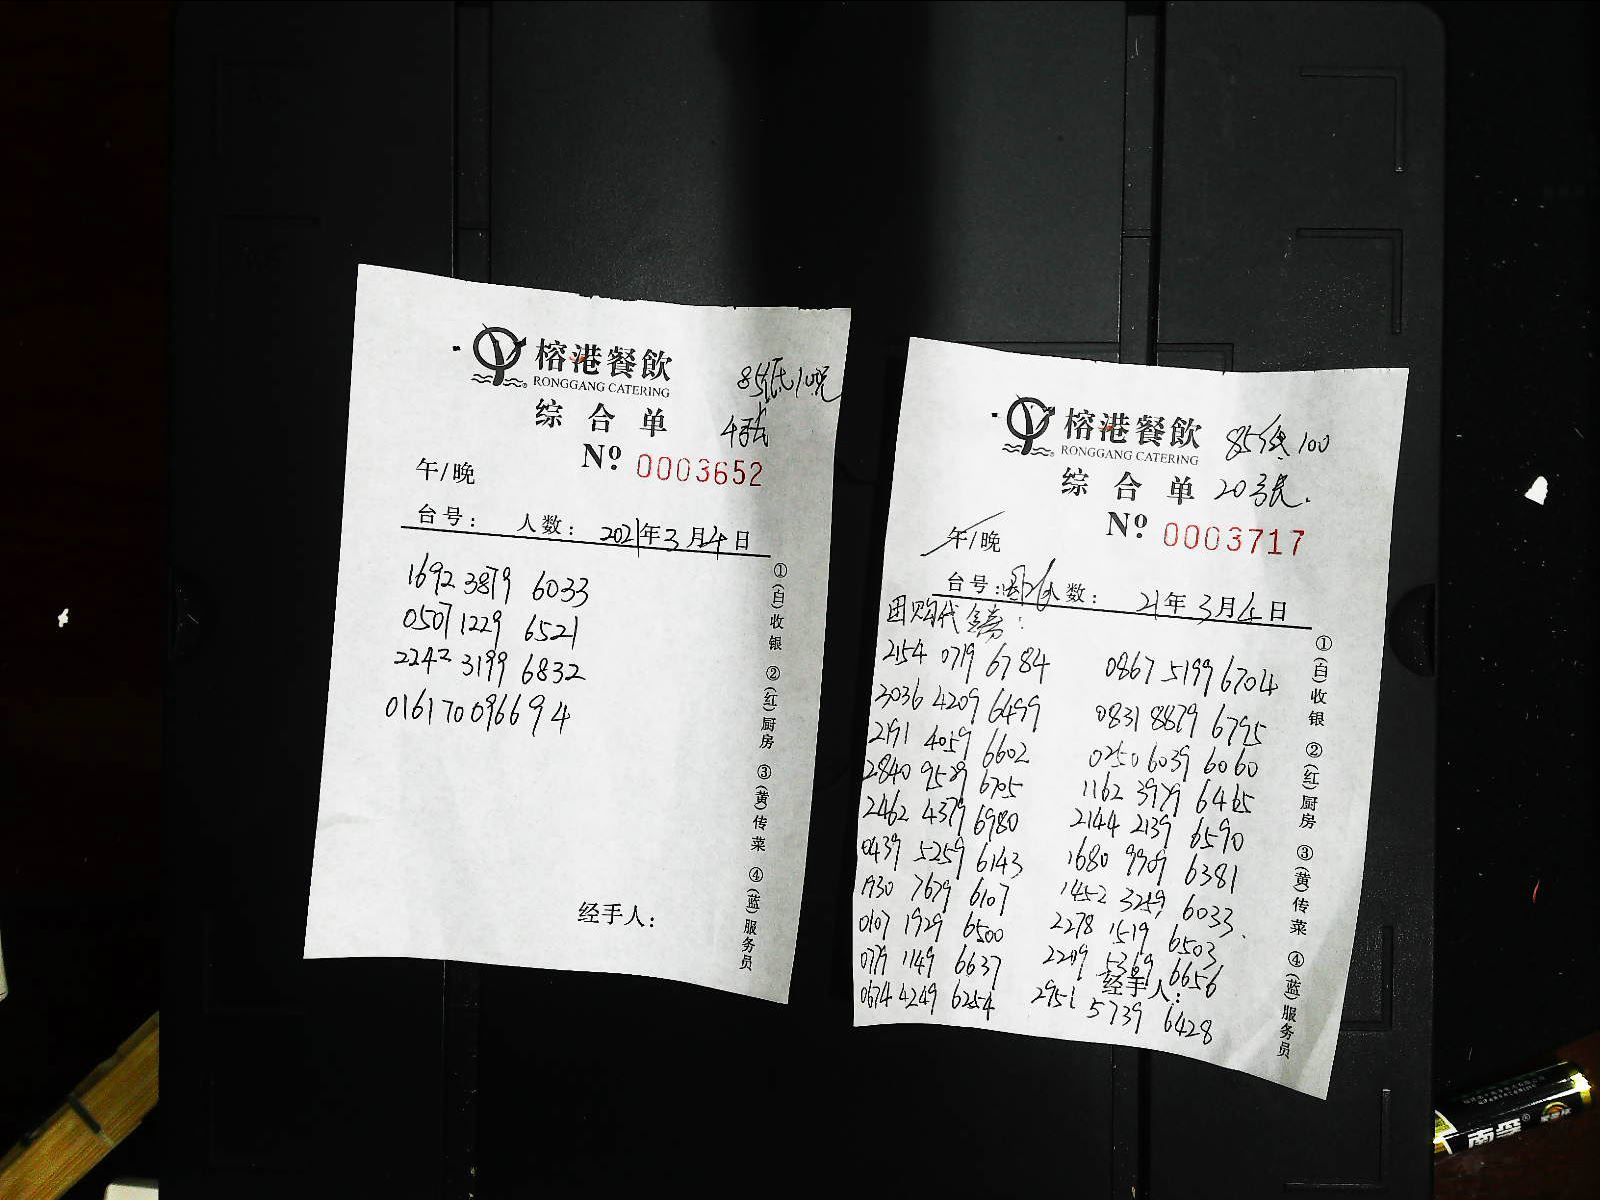 榕港餐飲
RONGGANG CATERING
85抵100
4张
综合单
Nº 0003652
午/晚
台号: 人数: 2021年3月4日
1692 3879 6033
0507 1229 6521
2242 3199 6832
0161 7009 6694
经手人:
①(白)收银 ②(红)厨房 ③(黄)传菜 ④(蓝)服务员
榕港餐飲
RONGGANG CATERING
85抵100
综合单
20张.
Nº 0003717
午/晚
台号: 人数: 21年3月4日
团购代金券:
2154 0719 6784
3036 4209 6499
2191 4059 6602
2840 9529 6705
2462 4379 6980
0439 5259 6143
1930 7679 6107
0107 1929 6500
0779 1149 6637
0674 4249 6254
0867 5199 6704
0831 8879 6795
0250 6039 6060
1162 3979 6465
2144 2139 6590
1680 9909 6381
1452 3259 6033.
2278 1519 6503
2249 5369 6656
2951 5739 6428
经手人:
①(白)收银 ②(红)厨房 ③(黄)传菜 ④(蓝)服务员
南孚